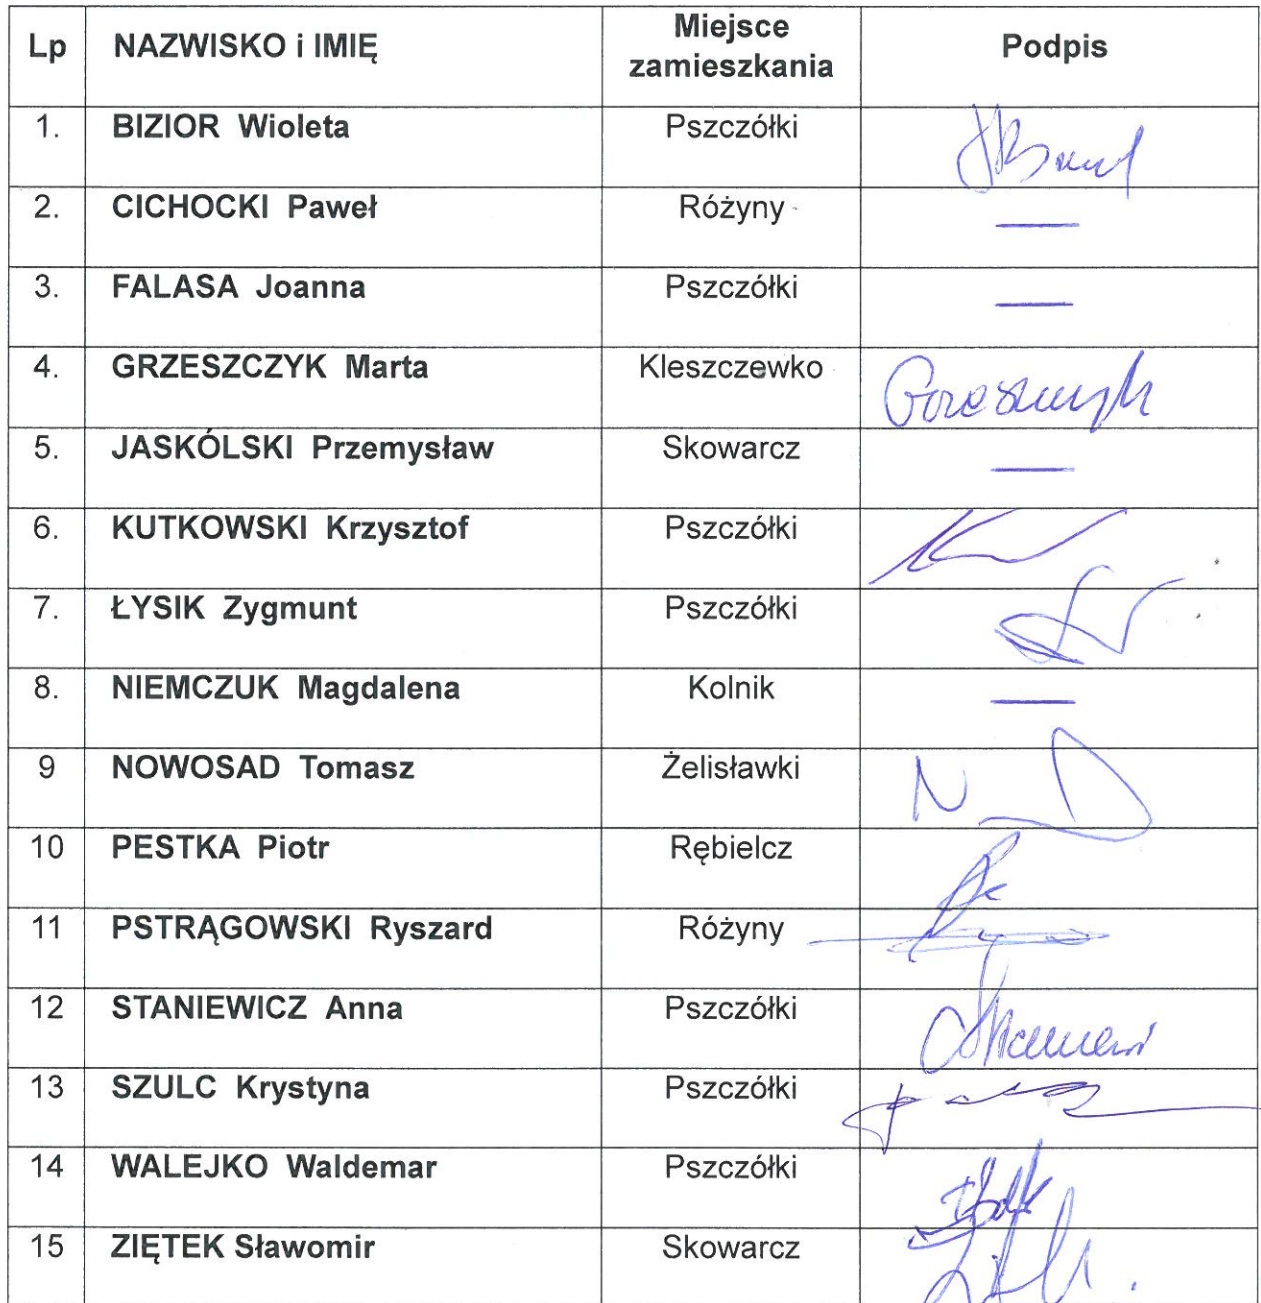 Lp NAZWISKO i IMIĘ Miejsce zamieszkania Podpis
1. BIZIOR Wioleta Pszczółki
2. CICHOCKI Paweł Różyny —
3. FALASA Joanna Pszczółki —
4. GRZESZCZYK Marta Kleszczewko
5. JASKÓLSKI Przemysław Skowarcz —
6. KUTKOWSKI Krzysztof Pszczółki
7. ŁYSIK Zygmunt Pszczółki
8. NIEMCZUK Magdalena Kolnik —
9 NOWOSAD Tomasz Żelisławki
10 PESTKA Piotr Rębielcz
11 PSTRĄGOWSKI Ryszard Różyny
12 STANIEWICZ Anna Pszczółki
13 SZULC Krystyna Pszczółki
14 WALEJKO Waldemar Pszczółki
15 ZIĘTEK Sławomir Skowarcz